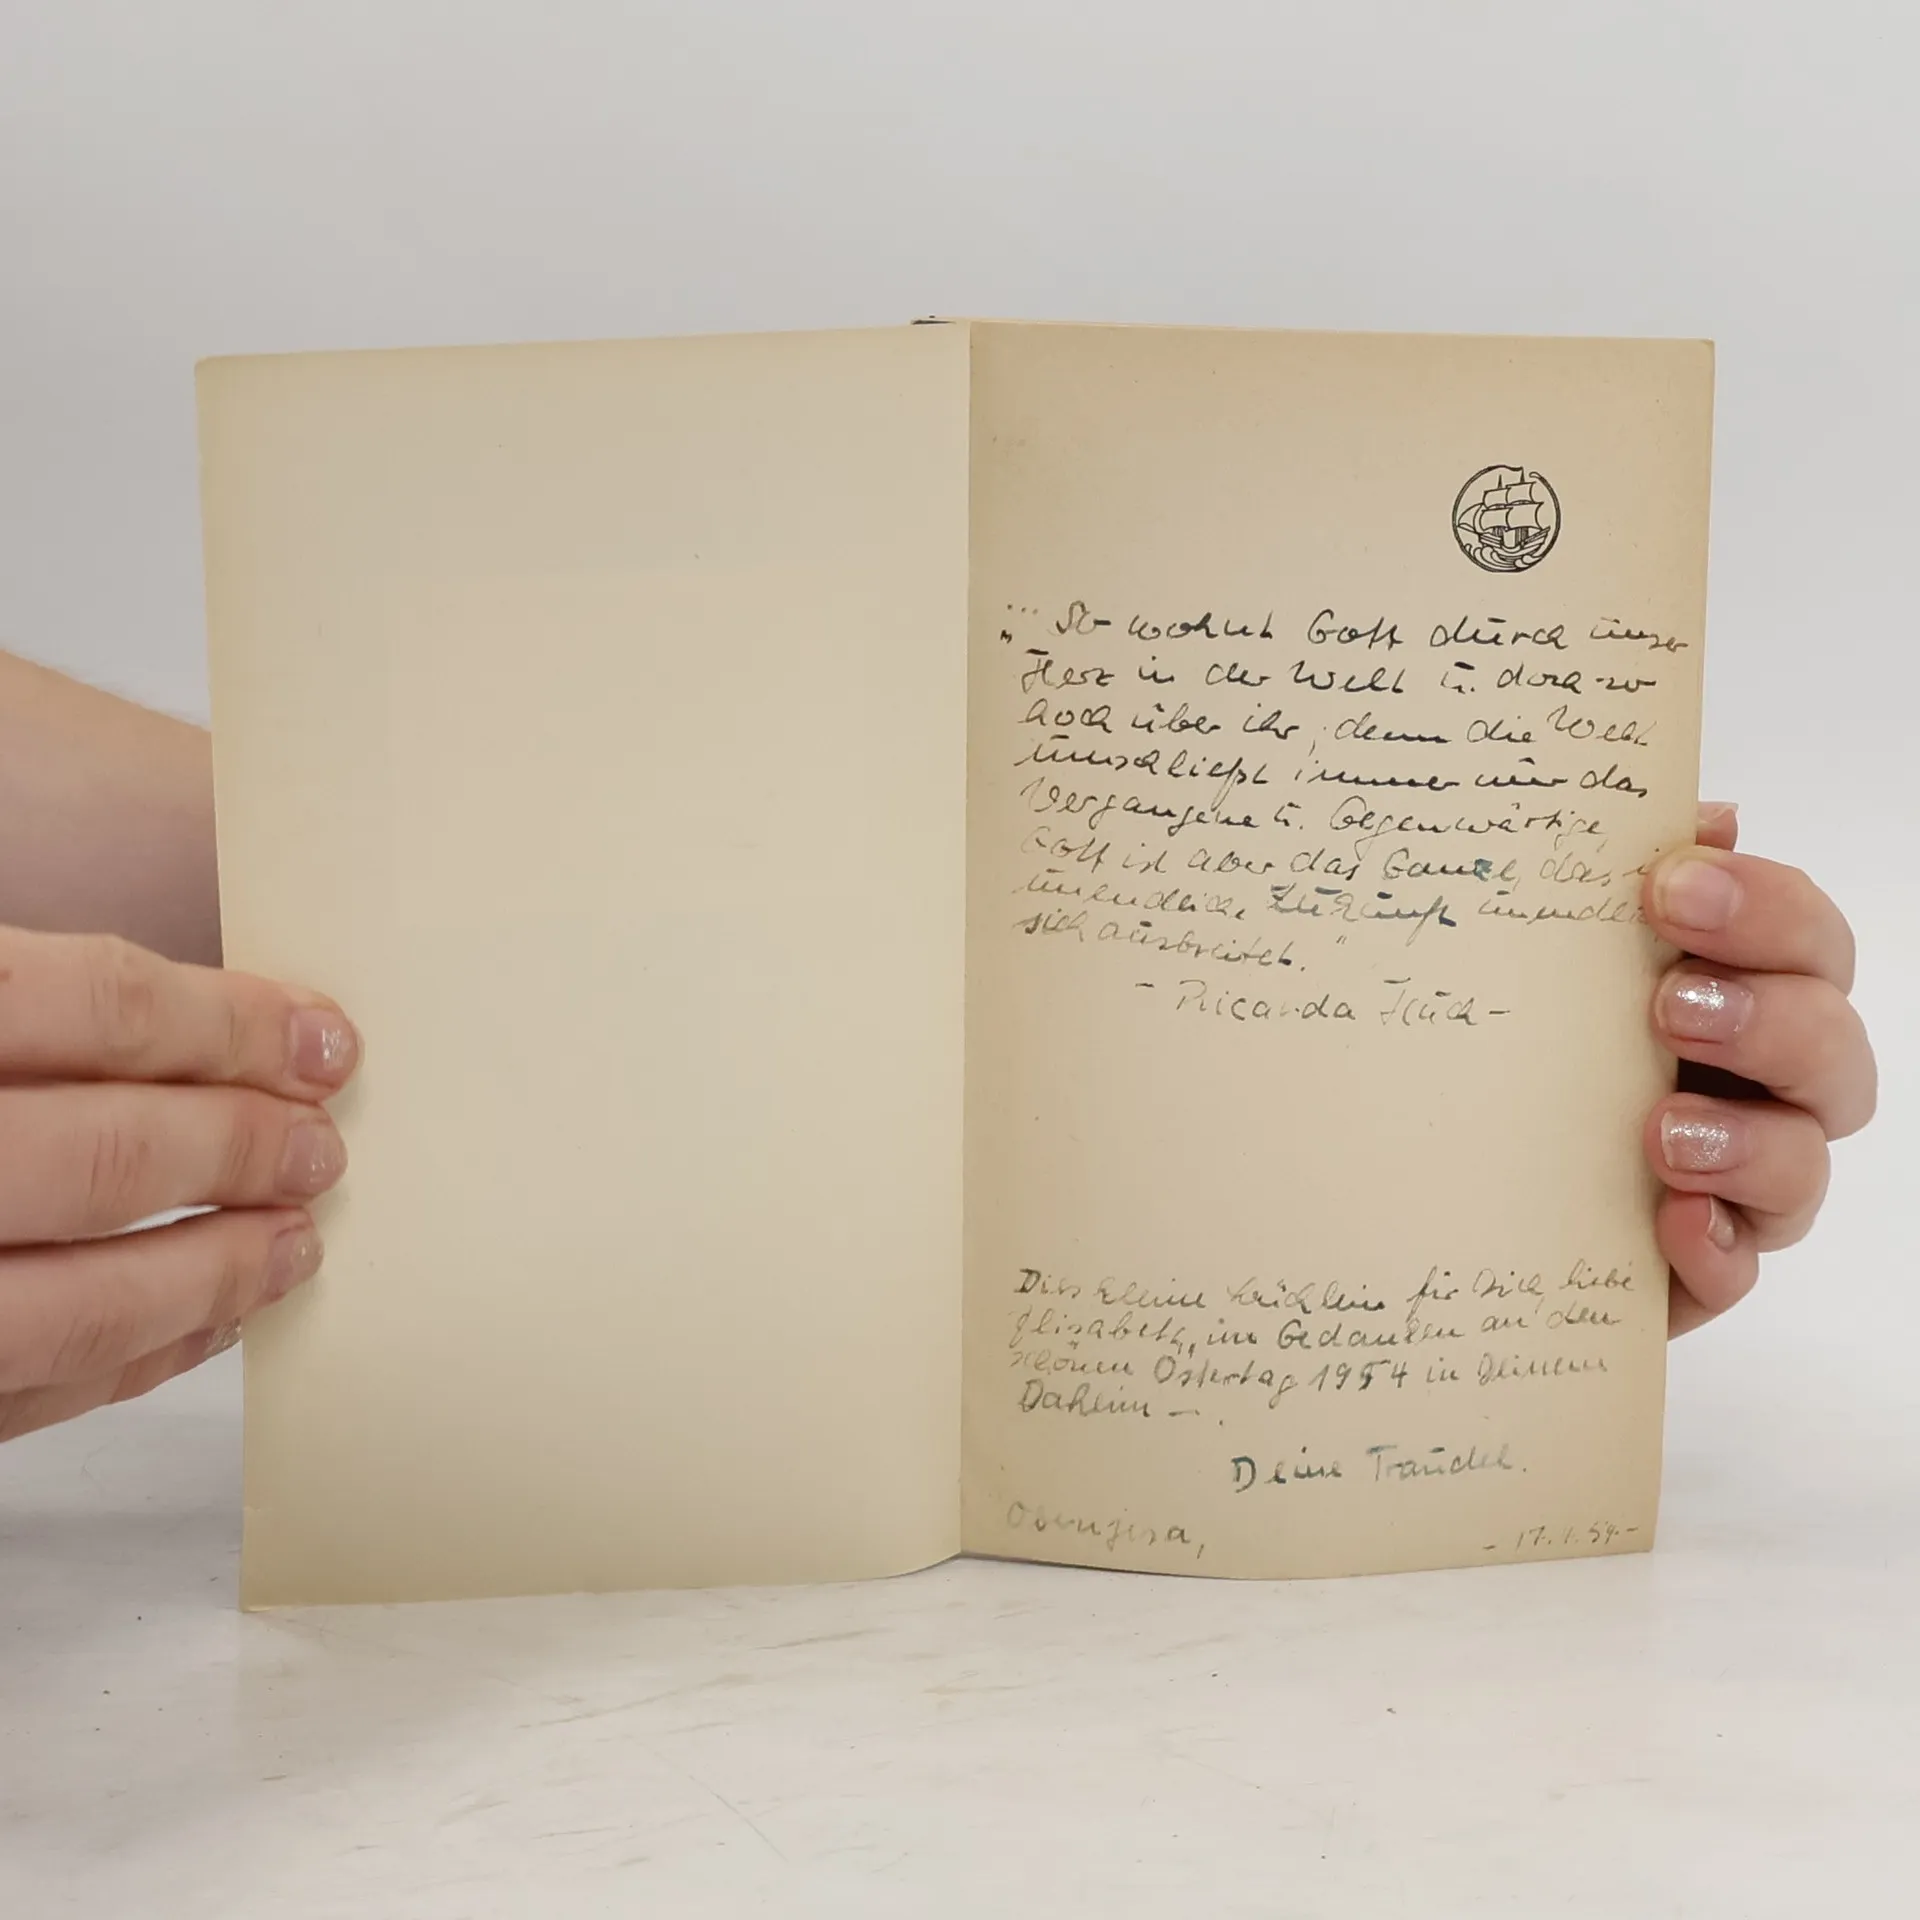 ... „So wohnt Gott durch unser
Herz in der Welt u. doch so
hoch über ihr, denn die Welt
umschließt immer nur das
Vergangene u. Gegenwärtige,
Gott ist aber das Ganze, das i
unendliche Zukunft unendlic
sich ausbreitet."
- Ricarda Huch -
Dies kleine Büchlein für Dich, liebe
Elisabeth, im Gedanken an den
schönen Ostertag 1954 in Deinem
Daheim -.
Deine Traudel.
Obernjesa,
- 17.1.59. -